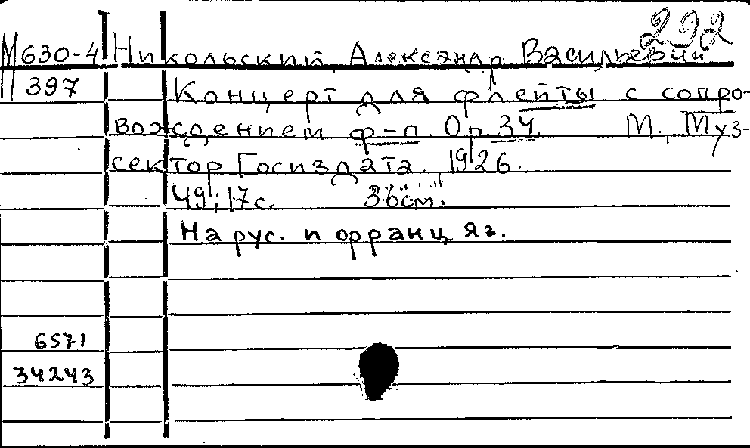 292
М630-4 Никольский, Александр Васильевич
П 397 Концерт для флейты с сопро-
вождением ф-п. Ор. 34. М., Муз-
сектор Госиздата, 1926.
49; 17 с. 36 см.
На рус. и франц яз.
6571
34243